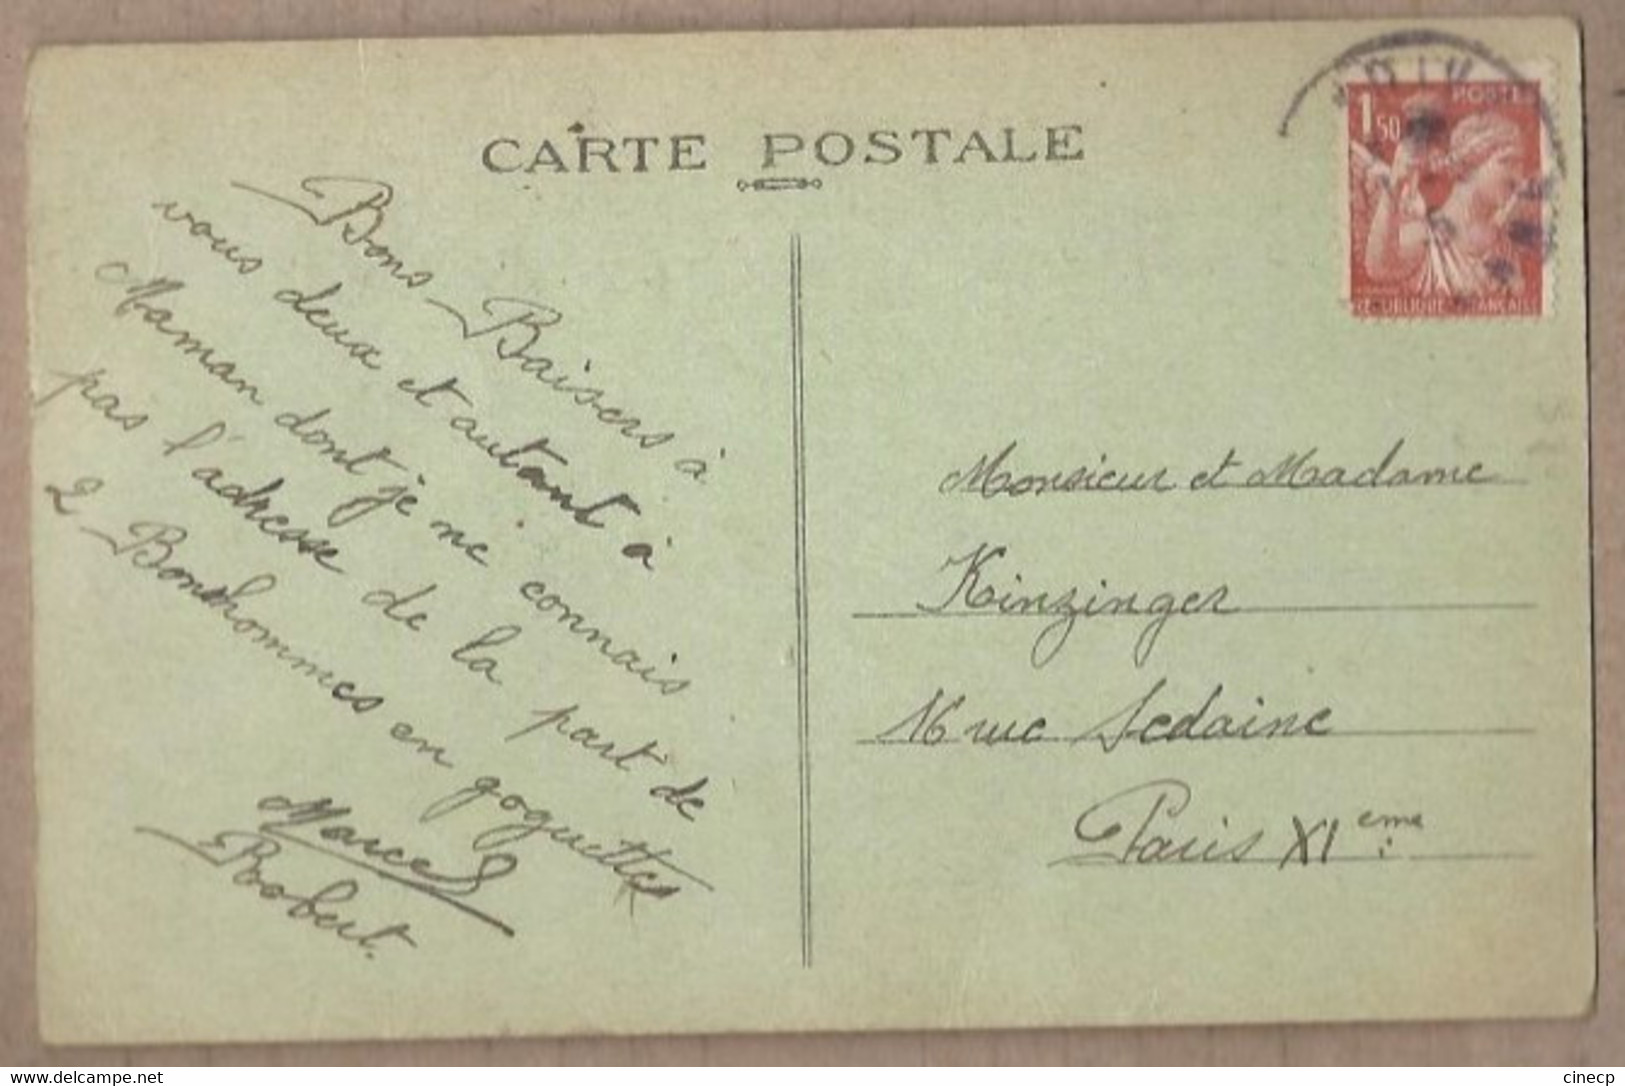 CARTE POSTALE
Bons Baisers à
vous deux et autant à
Maman dont je ne connais
pas l'adresse de la part de
2 Bonshommes en goguettes
Marcel
Robert.
1F50
POSTES
REPUBLIQUE FRANCAISE
Monsieur et Madame
Kinzinger
16 rue Sedaine
Paris XIeme
https://www.delcampe.net
cinecp